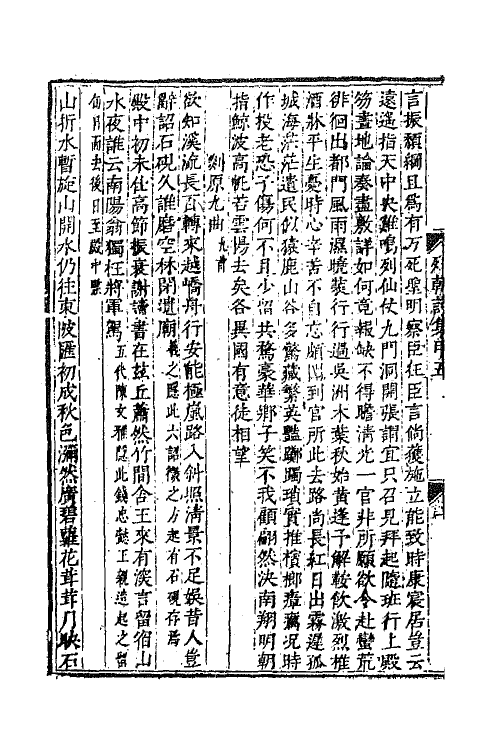 言振頹綱且為有万死渠明察臣任臣言倘獲施立能致時康宸居豈云
遠遙指天中央雞鳴列仙仗九門洞開張謂宜只召見拜起隨班行上殿
笏畫地論奏盡敷詳如何竟報缺不得瞻清光一官非所願欲令赴蠻荒
徘徊出都門風雨濕曉裝行行過吳洲木葉秋始黃逢予解鞍飲激烈椎
酒牀平生憂時心辛苦不自忘頗聞到官所此去路尚長紅日出霧遲孤
城海茫茫遺民似猿鹿山谷多驚藏繁英艷躑躅瑣實推檳榔瘴癘况時
作投老恐子傷何不且少留共騖豪華鄉子笑不我顧翩然決南翔明朝
指鯨波高帆若雲揚去矣各異國有意徒相望
剡原九曲九首
欲知溪流長百轉來越嶠舟行安能極嵐路入斜照清景不足娛昔人豈
辭詔石硯久誰磨空林閉遺廟義之隱此六詔徵之方起有石硯存焉
殿中初來仕高節振衰謝讀書在茲丘蕭然竹間舍王來有深言留宿山
水夜誰云南陽翁獨枉將軍駕五代陳文雅隱此錢忠懿王親造起之留
旬日而去後日王殿中
山折水暫旋山開水仍往東陂匯初成秋色瀰然廣碧蘿花茸茸月映石
列朝詩集甲五